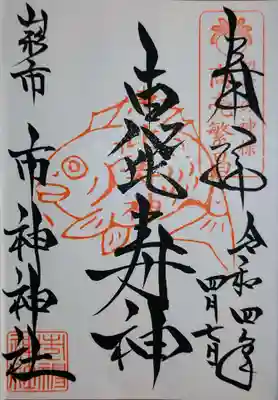 奉拝
令和四年
四月七日
恵比寿神
山形市
市神神社